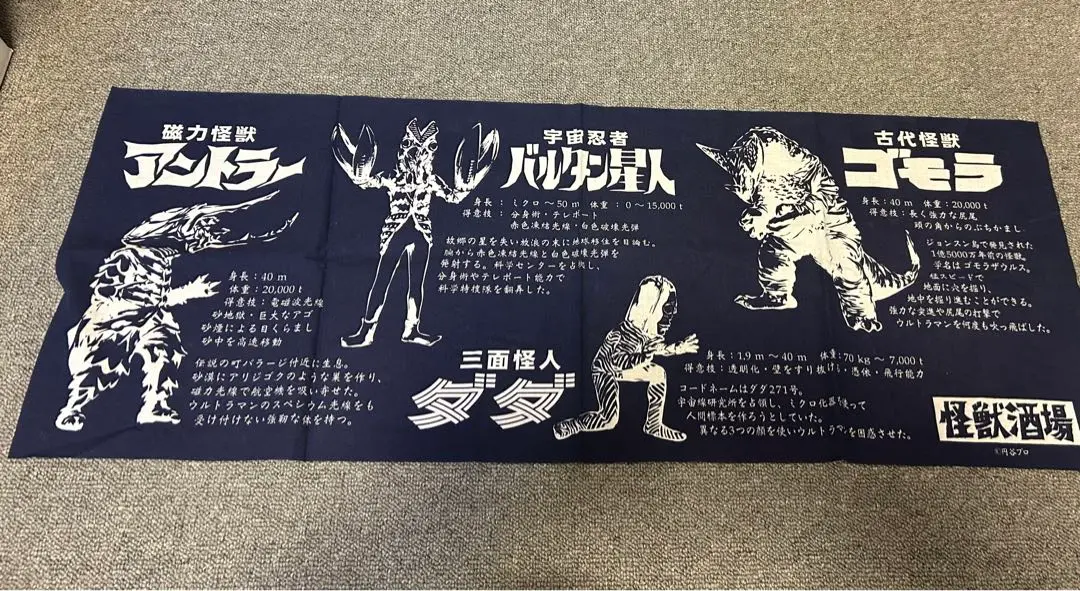 磁力怪獣
アントラー
身長：40 m
体重：20,000 t
得意技：電磁波光線
砂地獄・巨大なアゴ
砂煙による目くらまし
砂中を高速移動
伝説の町バラージ付近に生息。
砂漠にアリジゴクのような巣を作り、
磁力光線で航空機を吸い寄せた。
ウルトラマンのスペシウム光線をも
受け付けない強靭な体を持つ。
宇宙忍者
バルタン星人
身長：ミクロ〜50 m 体重：0〜15,000 t
得意技：分身術・テレポート
赤色凍結光線・白色破壊光弾
故郷の星を失い放浪の末に地球移住を目論む。
腕から赤色凍結光線と白色破壊光弾を
発射する。科学センターを占拠し、
分身術やテレポート能力で
科学特捜隊を翻弄した。
三面怪人
ダダ
身長：1.9 m〜40 m 体重：70 kg〜7,000 t
得意技：透明化・壁をすり抜ける・憑依・飛行能力
コードネームはダダ271号。
宇宙線研究所を占領し、ミクロ化器を使って
人間標本を作ろうとしていた。
異なる3つの顔を使いウルトラマンを困惑させた。
古代怪獣
ゴモラ
身長：40 m 体重：20,000 t
得意技：長く強力な尻尾
頭の角からのぶちかまし
ジョンスン島で発見された
1億5000万年前の怪獣。
学名はゴモラザウルス。
猛スピードで
地面に穴を掘り、
地中を掘り進むことができる。
強力な突進や尻尾の打撃で
ウルトラマンを何度も吹っ飛ばした。
怪獣酒場
©円谷プロ